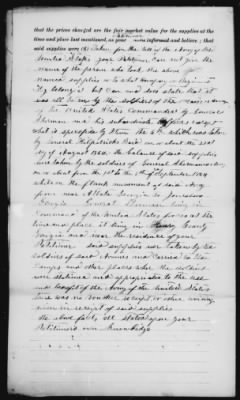 that the prices charged are the fair market value for the supplies at the
time and place last mentioned, as your informed and believe; that
said supplies were taken for the use of the Army of the
United States your Petitioner can not give the
name of the person who took the above
named supplies or to what Company or Regiment
they belonged but can and does state that it
was all done by the soldiers of the army
of the United States Commanded by General
Sherman and his subordinate officers except
what is specified by Item the which was taken
by General Kilpatrick Raid on or about the
day of August 1864. the balance of said supplies
were taken by the soldiers of General Sherman army
on or about from the 1st to the of September 1864
while on the flank movement of said Army
from near Atlanta Georgia to Jonesboro
Georgia General Sherman being in
Command of the United States forces at the
time and place it being in County
Georgia and near the residence of your
Petitioner said supplies were taken by the
soldiers of said Armies and carried to their
Camps and other places where the soldiers
were stationed and appropriated to the use
and benefit of the Army of the United States
there was no voucher receipt or other writing
given in receipt of said supplies
the above facts all stated upon your
Petitioners own knowledge